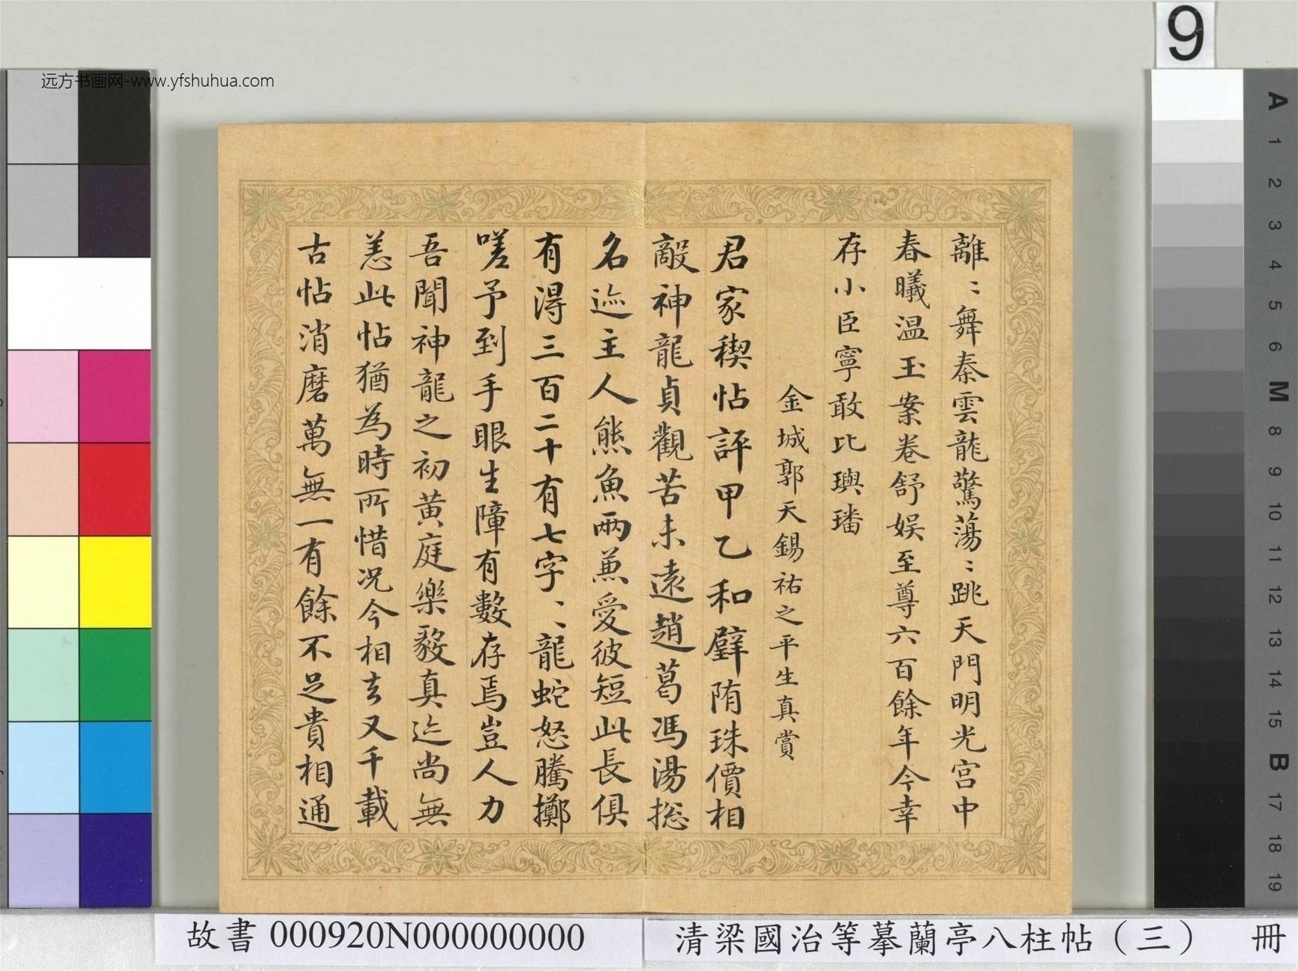 9
远方书画网-www.yfshuhua.com
離〻舞秦雲龍驚蕩〻跳天門明光宮中
春曦溫玉案卷舒娱至尊六百餘年今幸
存小臣寧敢比璵璠
金城郭天錫祐之平生真賞
君家稧帖評甲乙和璧隋珠價相
敵神龍貞觀苦未遠趙葛馮湯捴
名迹主人熊魚兩兼愛彼短此長俱
有得三百二十有七字、、龍蛇怒騰擲
嗟予到手眼生障有數存焉豈人力
吾聞神龍之初黄庭樂毅真迹尚無
恙此帖猶為時所惜况今相去又千載
古帖消磨萬無一有餘不足貴相通
A 1 2 3 4 5 6 M 8 9 10 11 12 13 14 15 B 17 18 19
故書 000920N000000000
清梁國治等摹蘭亭八柱帖（三） 冊